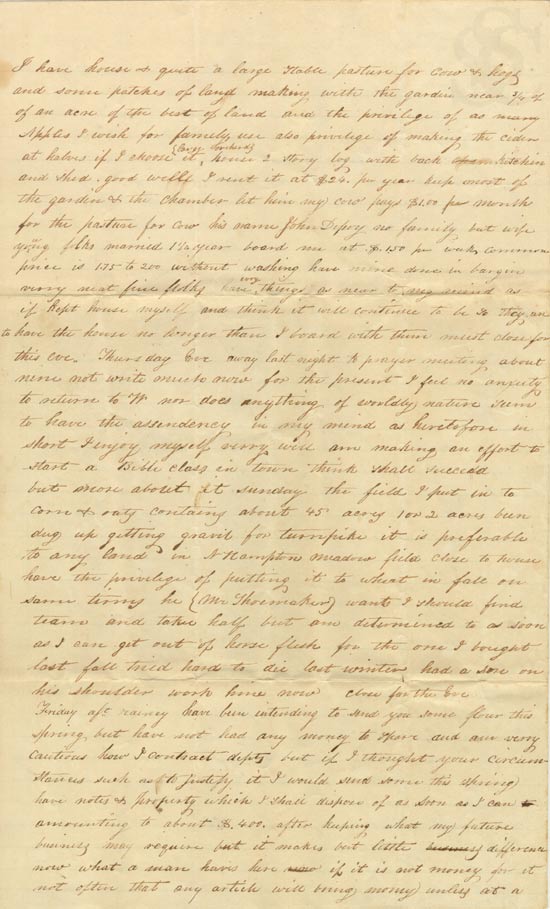 I have house & quite a large stable pasture for cow & hogs
and some patches of land making with the garden near 3/4 of
of an acre of the best of land and the privilege of as many
Apples I wish for family use also privilege of making the cider
(large orchard)
at halves if I choose it, house 2 story log with back kitchen
and shed. good well I rent it at $24. per year keep most of
the garden & the chamber let him my cow pays $1.00 per month
for the pasture for cow his name John Depoy no family but wife
young folks married 1 1/2 year board me at $1.50 per week, common
price is 1.75 to 200 without washing have mine done in bargin
verry neat fine folks have things as near to my mind as
if kept house myself and think it will continue to be so they are
to have the house no longer than I board with them must close for
this Eve. Thursday Eve away last night to prayer meeting about
nine not write much now for the present I feel no anxiety
to return to W nor does anything of worldly nature seem
to have the assendency in my mind as heretofore in
short I enjoy myself verry well am making an effort to
start a Bible class in town think shall succeed
but more about it sunday the field I put in to
corn & oats contains about 45 acres 1 or 2 acres been
dug up getting gravil for turnpike it is preferable
to any land in NHampton meadow field close to house
have the privilege of putting it to wheat in fall on
same terms he (Mr Shoemaker) want I should find
team and take half but am determined to as soon
as I can get out of horse flesh for the one I bought
last fall tried hard to die last winter had a son on
his shoulder work him now close for the Eve
Friday aft. rainey have been intending to send you some flour this
spring but have not had any money to spare and am verry
cautious how I contract depts but if I thought your circum-
stances such as to justify it I would send some this spring
have notes & property which I shall dispose of as soon as I can
amounting to about $400. after keeping what my future
business may require but it makes but little business difference
now what a man haves here if it is not money for it
not often that any article will bring money unless at a